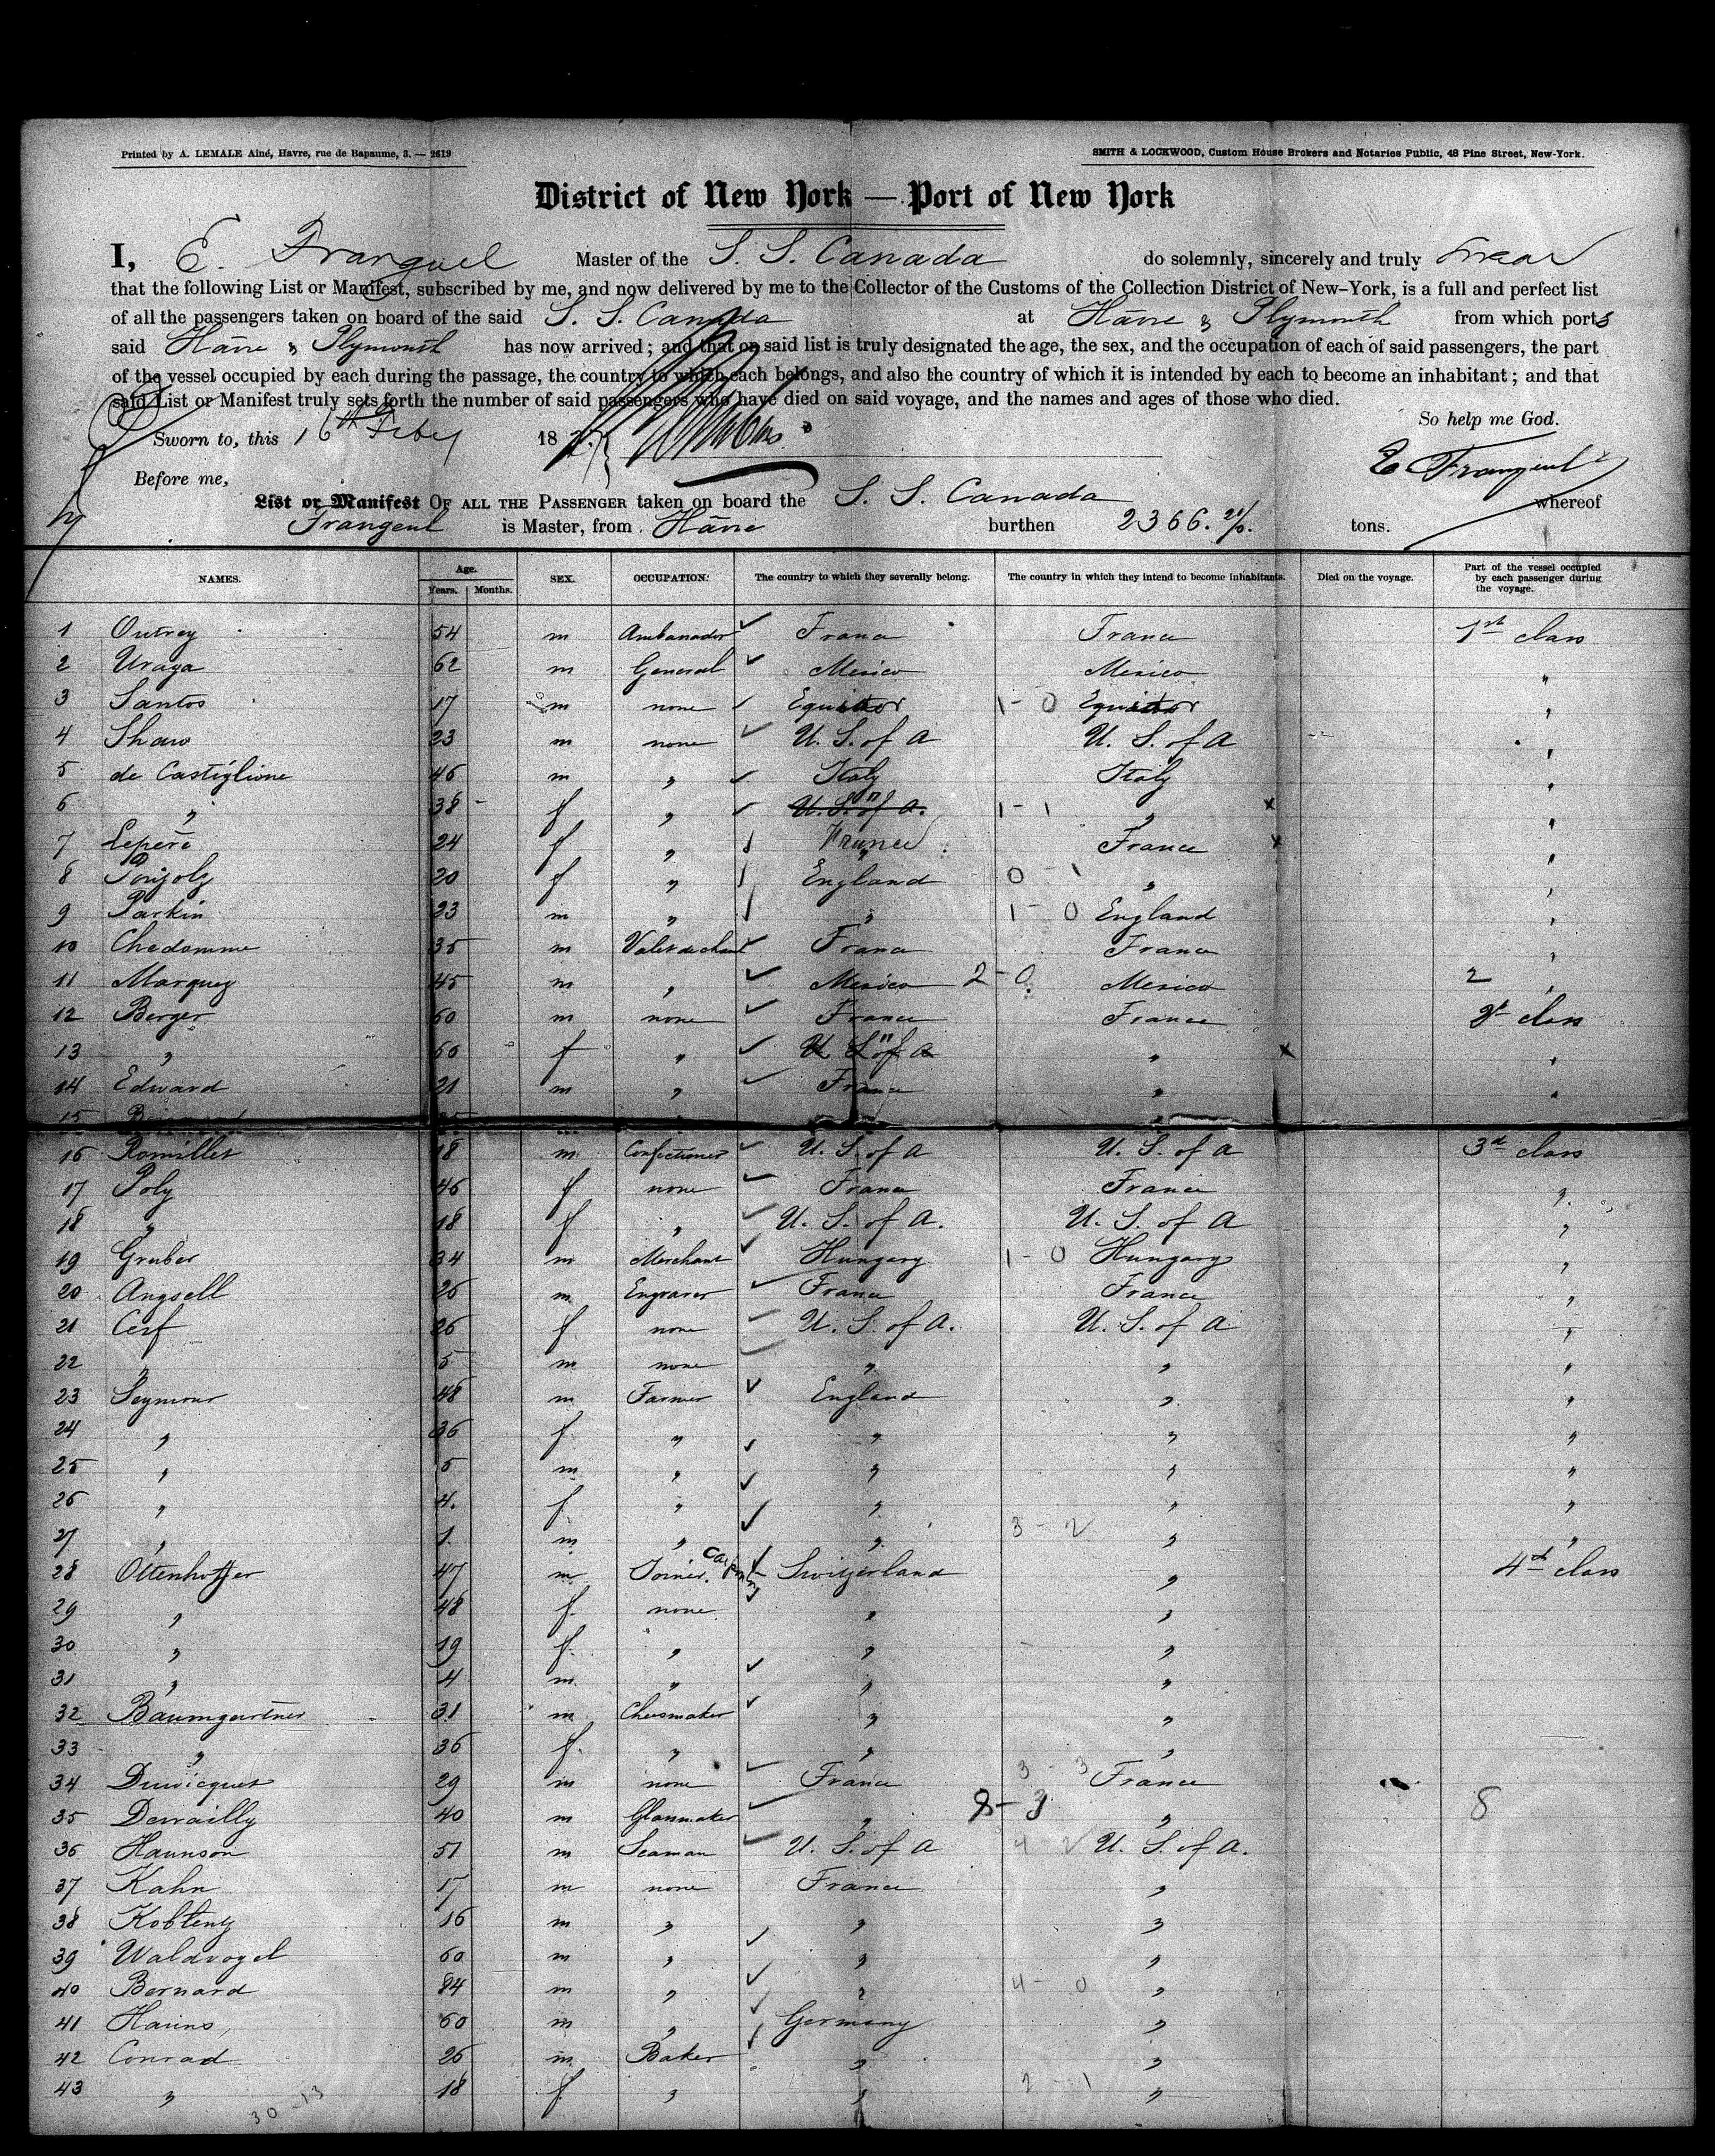 Printed by A. LEMALE Ainé, Havre, rue de Bapaume, 3. — 2619
SMITH & LOCKWOOD, Custom House Brokers and Notaries Public, 48 Pine Street, New-York.
District of New York — Port of New York
I, E. Frangeul Master of the S. S. Canada do solemnly, sincerely and truly swear
that the following List or Manifest, subscribed by me, and now delivered by me to the Collector of the Customs of the Collection District of New-York, is a full and perfect list
of all the passengers taken on board of the said S. S. Canada at Havre & Plymouth from which ports
said Havre & Plymouth has now arrived; and that on said list is truly designated the age, the sex, and the occupation of each of said passengers, the part
of the vessel occupied by each during the passage, the country to which each belongs, and also the country of which it is intended by each to become an inhabitant; and that
said List or Manifest truly sets forth the number of said passengers who have died on said voyage, and the names and ages of those who died.
So help me God.
Sworn to, this 16th Feby 18
E Frangeul
Before me,
List or Manifest OF ALL THE PASSENGER taken on board the S. S. Canada whereof
Frangeul is Master, from Havre burthen 2366. tons.
NAMES. Age. Years. Months. SEX. OCCUPATION. The country to which they severally belong. The country in which they intend to become inhabitants. Died on the voyage. Part of the vessel occupied by each passenger during the voyage.
1 Outrey 54 m Ambassador France France 1st class
2 Uraga 62 m General Mexico Mexico "
3 Santos 17 m none Equator 1-0 Equator "
4 Shaw 23 m none U. S. of A U. S. of A "
5 de Castiglione 46 m " Italy Italy "
6 " 38 f " U. S. of A. " 1-1 " x "
7 Leperè 24 f " France France x "
8 20 f " England 0-1 " "
9 Parkin 23 m " " 1-0 England "
10 Chedomme 35 m Valet de cham France France "
11 Marquez 45 m " Mexico 2-0 Mexico 2 "
12 Berger 60 m none France France 2d class
13 " 60 f " U. S. of A " " x "
14 Edward 21 m " France " "
15
16 Romillet 18 m Confectioner U. S. of A U. S. of A 3d class
17 Poly 46 f none France France "
18 " 18 f " U. S. of A. U. S. of A "
19 Gruber 34 m Merchant Hungary 1-0 Hungary "
20 Angsell 26 m Engraver France France "
21 Cerf 26 f none U. S. of A. U. S. of A "
22 " 5 m none " " "
23 Seymour 48 m Farmer England " "
24 " 36 f " " " "
25 " 5 m " " " "
26 " 4. f " " " "
27 " 1. m " " 3-2 " "
28 Ottenhoffer 47 m Joiner. Carpentry Switzerland " 4d class
29 " 48 f none " "
30 " 19 f " " "
31 " 4 m " " "
32 Baumgartner 31 m Cheesmaker " "
33 " 36 f " " "
34 Duvicquet 29 m none France 3-3 France
35 Dewailly 40 m Glassmaker " 8-3 " 8
36 Haunson 51 m Seaman U. S. of A 4-2 U. S. of A.
37 Kahn 17 m none France "
38 Koblentz 16 m " " "
39 Waldvogel 60 m " " "
40 Bernard 84 m " " 4-0 "
41 Hauns 60 m " Germany "
42 Conrad 26 m Baker " "
43 " 18 f " " 2-1 "
30-13